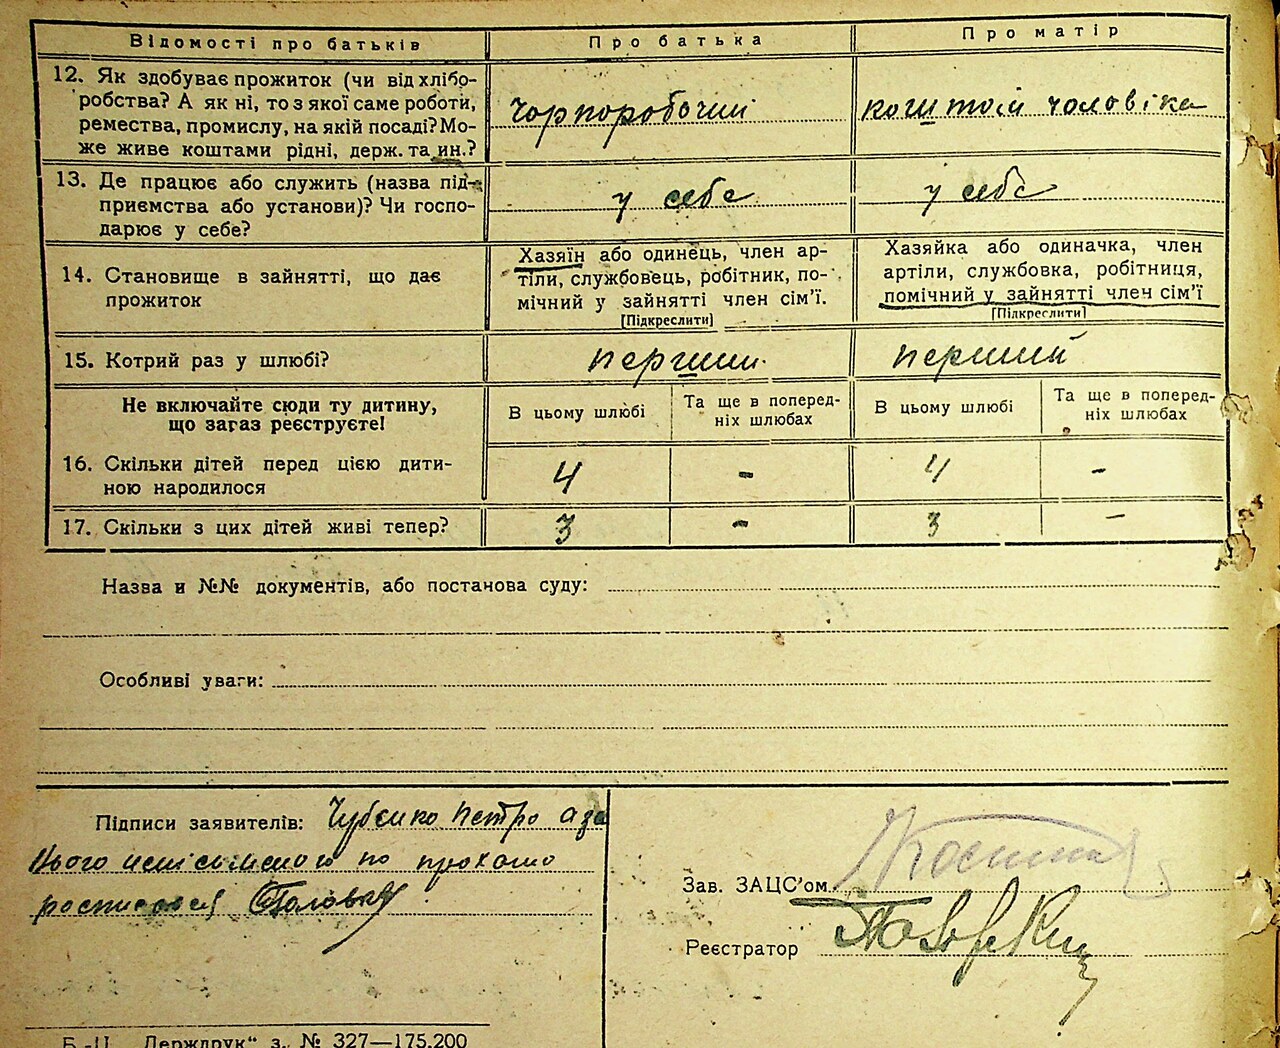 Відомості про батьків
Про батька
Про матір
12. Як здобуває прожиток (чи від хлібо-
робства? А як ні, то з якої саме роботи,
ремества, промислу, на якій посаді? Мо-
же живе коштами рідні, держ. та ин.?
чорноробочий
коштом чоловіка
13. Де працює або служить (назва під-
приємства або установи)? Чи госпо-
дарює у себе?
у себе
у себе
14. Становище в зайнятті, що дає
прожиток
Хазяїн або одинець, член ар-
тіли, службовець, робітник, по-
мічний у зайнятті член сім'ї.
[Підкреслити]
Хазяйка або одиначка, член
артіли, службовка, робітниця,
помічний у зайнятті член сім'ї
[Підкреслити]
15. Котрий раз у шлюбі?
перший
перший
Не включайте сюди ту дитину,
що загаз реєструєте!
В цьому шлюбі
Та ще в поперед-
ніх шлюбах
В цьому шлюбі
Та ще в поперед-
ніх шлюбах
16. Скільки дітей перед цією дити-
ною народилося
4
-
4
-
17. Скільки з цих дітей живі тепер?
3
-
3
-
Назва и №№ документів, або постанова суду:
Особливі уваги:
Підписи заявителів: Чубенко Петро а за
нього неписьменого по проханю
росписався
Зав. ЗАЦС'ом
Реєстратор
Б.-Ц. „Держдрук" з. № 327—175.200